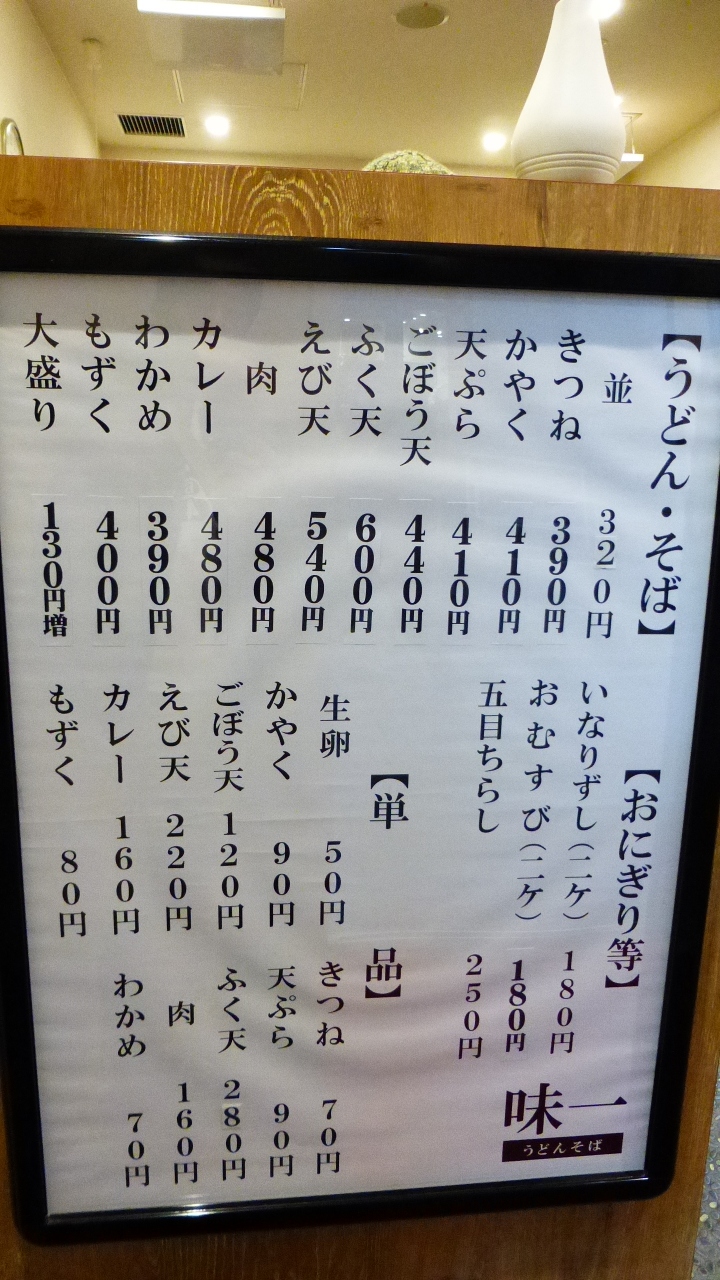 【うどん・そば】
並 320円
きつね 390円
かやく 410円
天ぷら 410円
ごぼう天 440円
ふく天 600円
えび天 540円
肉 480円
カレー 480円
わかめ 390円
もずく 400円
大盛り 130円増
【おにぎり等】
いなりずし(二ケ) 180円
おむすび(二ケ) 180円
五目ちらし 250円
【単品】
生卵 50円
かやく 90円
ごぼう天 120円
えび天 220円
カレー 160円
もずく 80円
きつね 70円
天ぷら 90円
ふく天 280円
肉 160円
わかめ 70円
味一
うどんそば